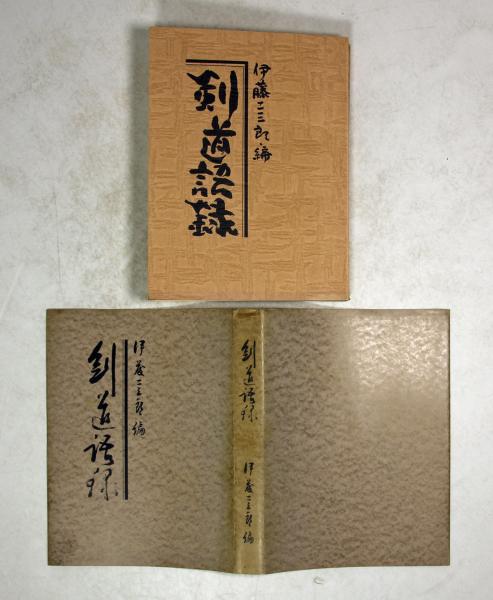 伊藤二三郎・編
剣道語録
伊藤二三郎編
剣道語録
剣道語録
伊藤二三郎編